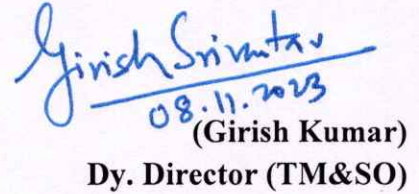 Girish Srivastav
08.11.2023
(Girish Kumar)
Dy. Director (TM&SO)